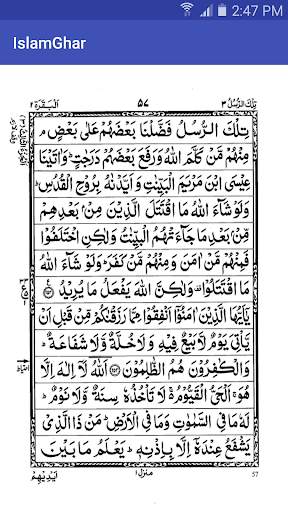 2:47 PM
IslamGhar
تِلْكَ الرُّسُلُ ٣ ٥٧ اَلْبَقَرَة ٢
تِلْكَ الرُّسُلُ فَضَّلْنَا بَعْضَهُمْ عَلٰى بَعْضٍ ۘ
مِنْهُمْ مَّنْ كَلَّمَ اللّٰهُ وَرَفَعَ بَعْضَهُمْ دَرَجٰتٍ ؕ وَاٰتَيْنَا
عِيْسَى ابْنَ مَرْيَمَ الْبَيِّنٰتِ وَاَيَّدْنٰهُ بِرُوْحِ الْقُدُسِ ؕ
وَلَوْ شَآءَ اللّٰهُ مَا اقْتَتَلَ الَّذِيْنَ مِنْۢ بَعْدِهِمْ
مِّنْۢ بَعْدِ مَا جَآءَتْهُمُ الْبَيِّنٰتُ وَلٰكِنِ اخْتَلَفُوْا
فَمِنْهُمْ مَّنْ اٰمَنَ وَمِنْهُمْ مَّنْ كَفَرَ ؕ وَلَوْ شَآءَ اللّٰهُ
مَا اقْتَتَلُوْا ۟ وَلٰكِنَّ اللّٰهَ يَفْعَلُ مَا يُرِيْدُ ﴿٢٥٣﴾
يٰۤاَيُّهَا الَّذِيْنَ اٰمَنُوْۤا اَنْفِقُوْا مِمَّا رَزَقْنٰكُمْ مِّنْ قَبْلِ اَنْ
يَّاْتِيَ يَوْمٌ لَّا بَيْعٌ فِيْهِ وَلَا خُلَّةٌ وَّلَا شَفَاعَةٌ ؕ
وَالْكٰفِرُوْنَ هُمُ الظّٰلِمُوْنَ ﴿٢٥٤﴾ اَللّٰهُ لَاۤ اِلٰهَ اِلَّا
هُوَ ۚ اَلْحَيُّ الْقَيُّوْمُ ۚ لَا تَاْخُذُهٗ سِنَةٌ وَّلَا نَوْمٌ ؕ
لَهٗ مَا فِي السَّمٰوٰتِ وَمَا فِي الْاَرْضِ ؕ مَنْ ذَا الَّذِيْ
يَشْفَعُ عِنْدَهٗۤ اِلَّا بِاِذْنِهٖ ؕ يَعْلَمُ مَا بَيْنَ
اَيْدِيْهِمْ منزل ١ 57